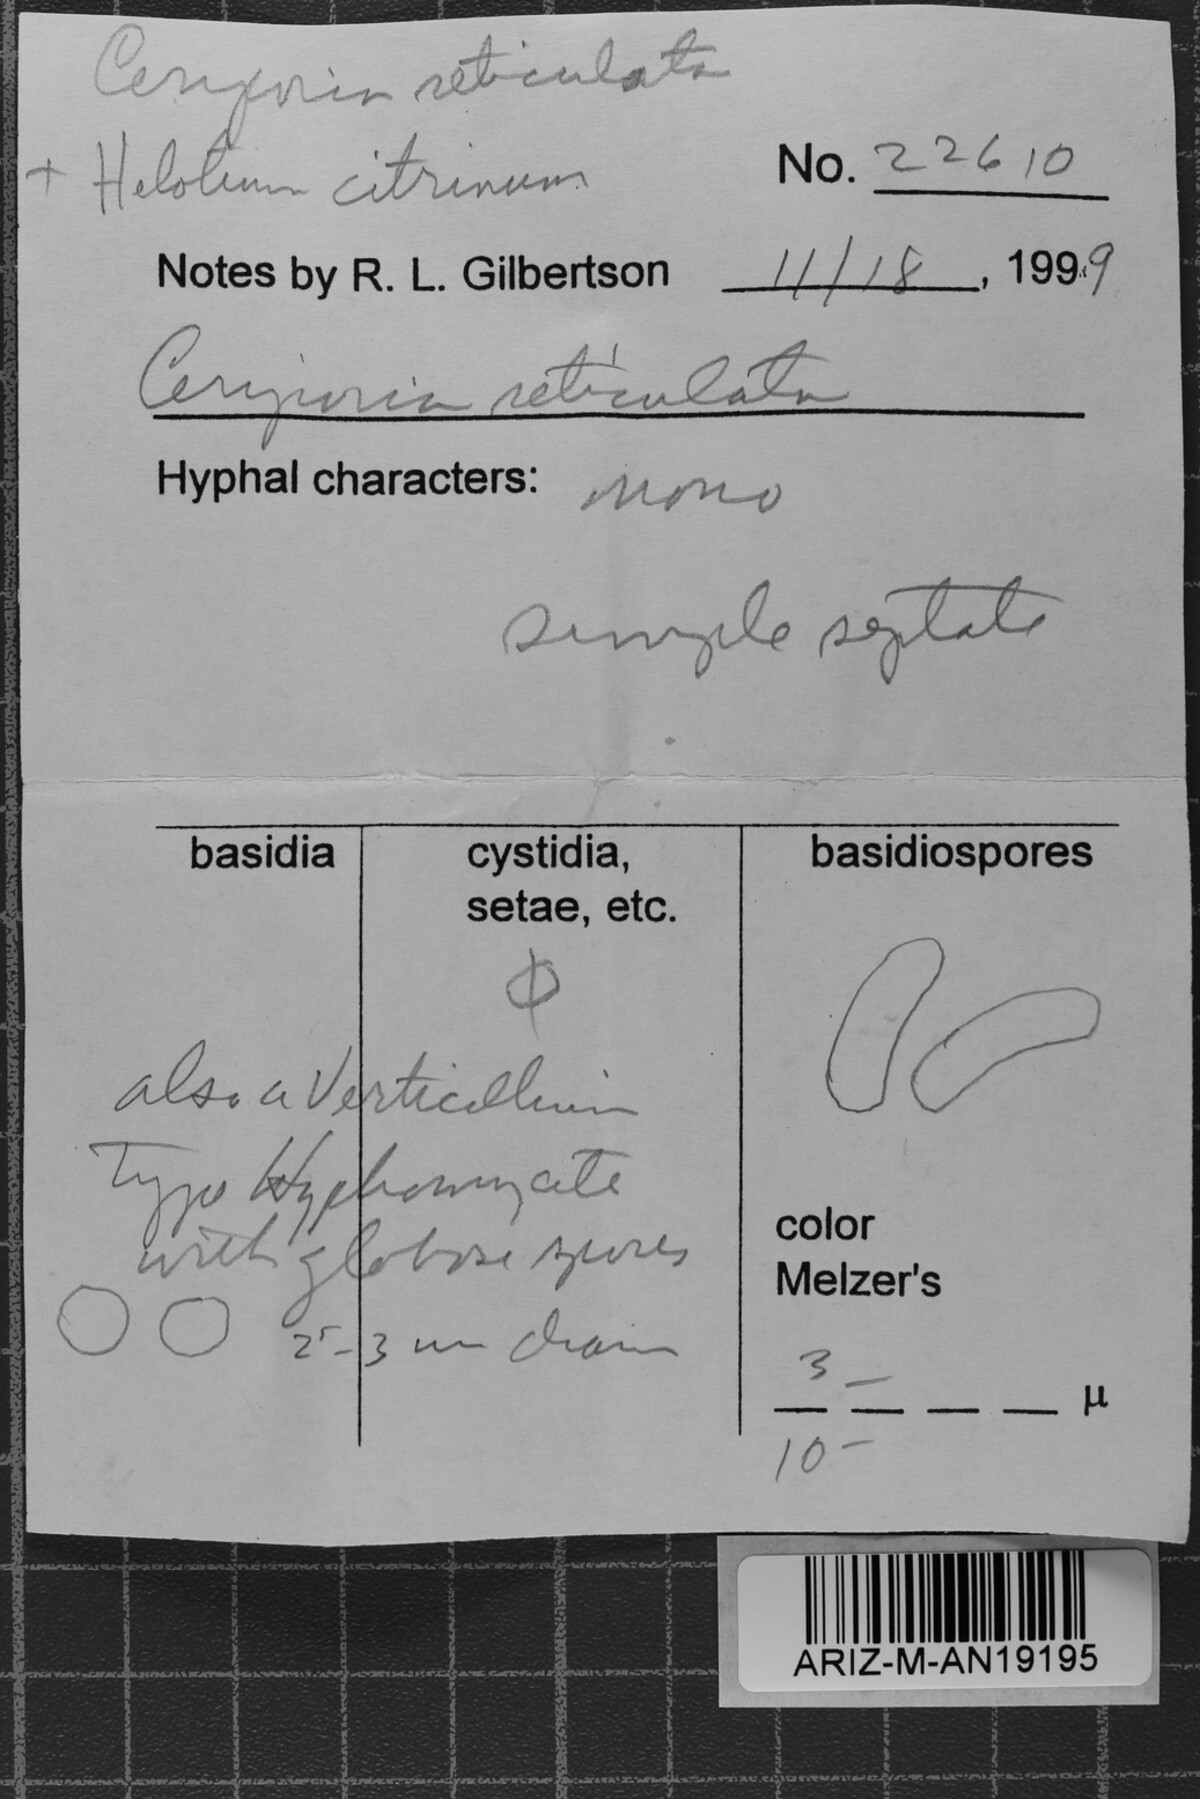 Ceriporia reticulata
+ Helotium citrinum
No. 22610
Notes by R. L. Gilbertson 11/18, 1999
Ceriporia reticulata
Hyphal characters: mono
simple septate
basidia
cystidia,
setae, etc.
basidiospores
φ
also a Verticillium
type Hyphomycete
with globose spores
2-3 um diam
color
Melzer's
3 –
_ _ _ _ µ
10 –
ARIZ-M-AN19195